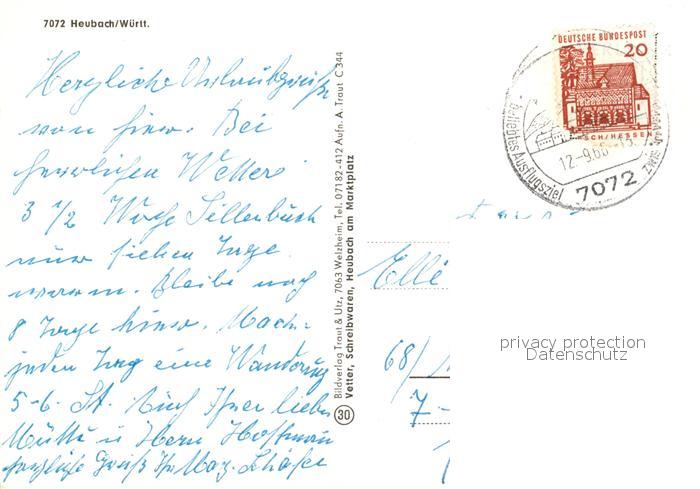 7072 Heubach/Württ.
Herzliche Urlaubsgrüße
von hier. Bei
herrlichem Wetter
3 1/2 Woche Sillenbuch
nur sieben Tage
waren. Bleibe noch
8 Tage hier. Mache
jeden Tag eine Wanderung
5-6 St. Auch Ihrer lieben
Mutti u Herrn Hoffmann
herzliche Grüß Ihr Marg. Schäfer
Bildverlag Traut & Utz, 7063 Welzheim, Tel. 07182-412 Aufn. A. Traut C 344
Vetter, Schreibwaren, Heubach am Marktplatz
30
DEUTSCHE BUNDESPOST
20
SCH/HESSEN
beliebtes Ausflugsziel
12.-9.66
7072
Elli
68/
7-
privacy protection
Datenschutz